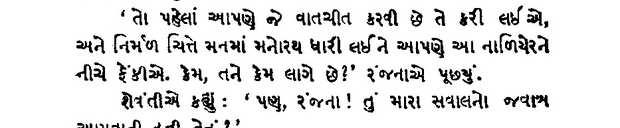 ‘તો પહેલાં આપણે જે વાતચીત કરવી છે તે કરી લઈએ,
અને નિર્મળ ચિત્તે મનમાં મનોરથ ધારી લઈને આપણે આ નાળિયેરને
નીચે ફેંકીએ. કેમ, તને કેમ લાગે છે?’ રંજનાએ પૂછ્યું.
શેવંતીએ કહ્યું : ‘પણ, રંજના! તું મારા સવાલનો જવાબ